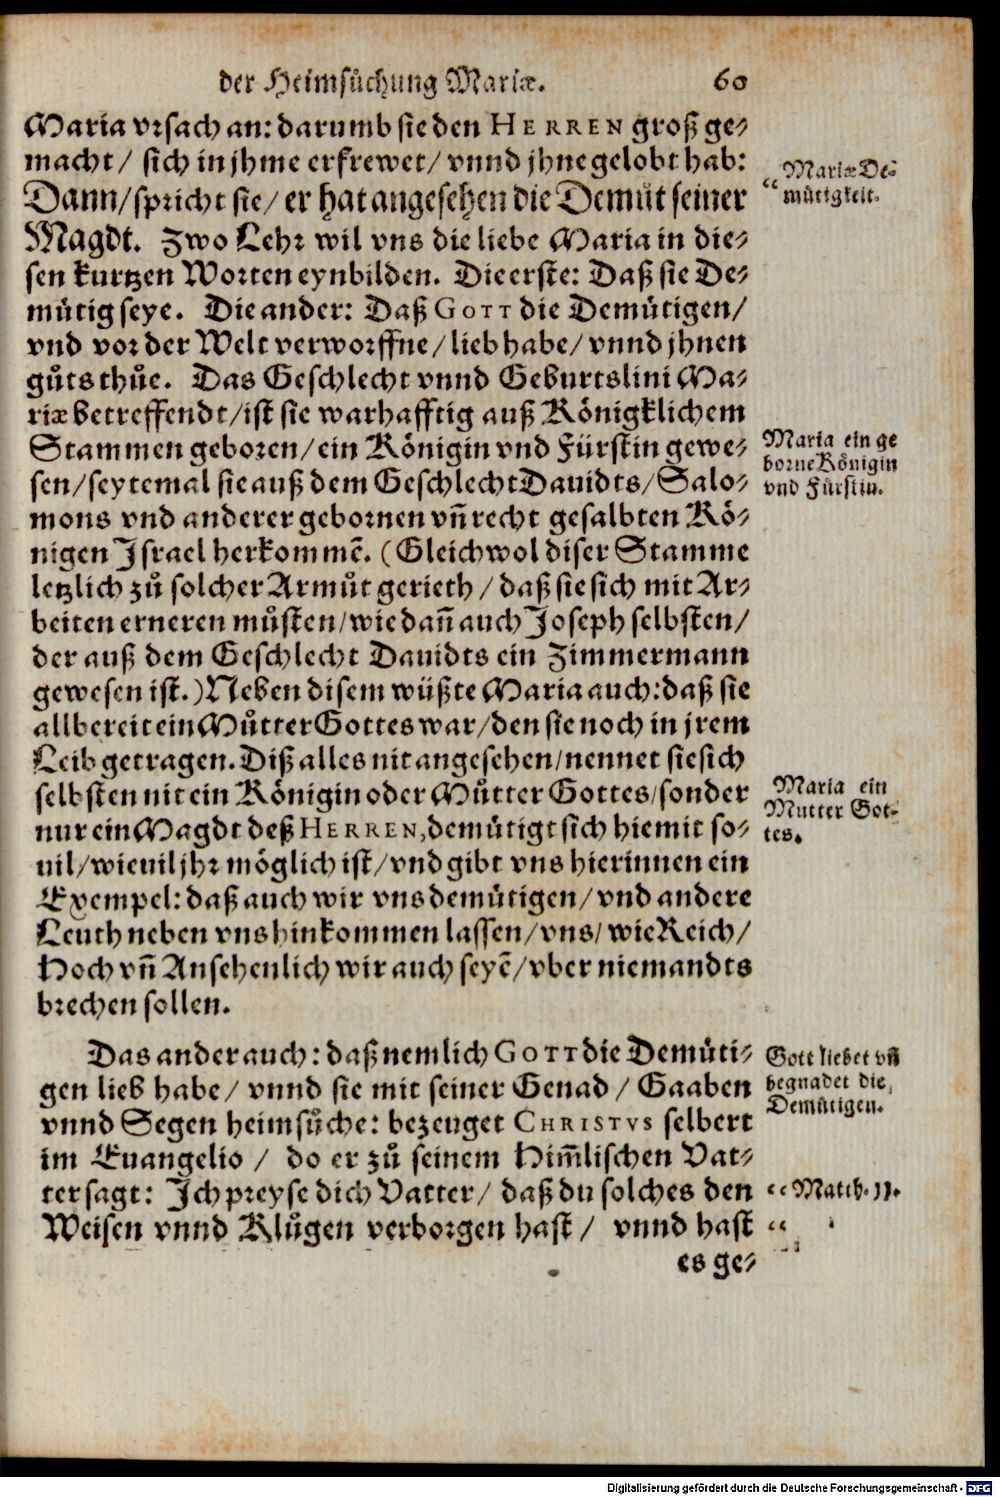 der Heimsůchung Mariæ. 60
Maria vrsach an: darumb sie den HERREN groß ge-
macht/ sich in jhme erfrewet/ vnnd jhne gelobt hab:
Dann/ spricht sie/ er hat angesehen die Demůt seiner
Magdt. Zwo Lehr wil vns die liebe Maria in die-
sen kurtzen Worten eynbilden. Die erste: Daß sie De-
můtig seye. Die ander: Daß GOTT die Demůtigen/
vnd vor der Welt verworffne/ lieb habe/ vnnd jhnen
gůts thůe. Das Geschlecht vnnd Geburtslini Ma-
riæ betreffendt/ ist sie warhafftig auß Königklichem
Stammen geboren/ ein Königin vnd Fürstin gewe-
sen/ seytemal sie auß dem Geschlecht Dauidts/ Salo-
mons vnd anderer gebornen vñ recht gesalbten Kö-
nigen Israel herkommẽ. (Gleichwol diser Stamme
letzlich zů solcher Armůt gerieth/ daß sie sich mit Ar-
beiten erneren můsten/ wie dañ auch Joseph selbsten/
der auß dem Geschlecht Dauidts ein Zimmermann
gewesen ist.) Neben disem wüßte Maria auch: daß sie
allbereit ein Můtter Gottes war/ den sie noch in jrem
Leib getragen. Diß alles nit angesehen/ nennet sie sich
selbsten nit ein Königin oder Můtter Gottes/ sonder
nur ein Magdt deß HERREN, demůtigt sich hiemit so-
uil/ wieuil jhr möglich ist/ vnd gibt vns hierinnen ein
Exempel: daß auch wir vns demůtigen/ vnd andere
Leuth neben vns hinkommen lassen/ vns/ wie Reich/
Hoch vñ Ansehenlich wir auch seyẽ/ vber niemandts
brechen sollen.
Das ander auch: daß nemlich GOTT die Demůti-
gen lieb habe/ vnnd sie mit seiner Genad/ Gaaben
vnnd Segen heimsůche: bezeuget CHRISTVS selbert
im Euangelio/ do er zů seinem Him̃lischen Vat-
ter sagt: Ich preyse dich Vatter/ daß du solches den
Weisen vnnd Klůgen verborgen hast/ vnnd hast
es ge-
Mariæ De-
můtigkeit.
Maria ein ge
borne Königin
vnd Fürstin.
Maria ein
Mutter Got-
tes.
Gott liebet vñ
begnadet die
Demůtigen.
Matth. 11.
Digitalisierung gefördert durch die Deutsche Forschungsgemeinschaft - DFG